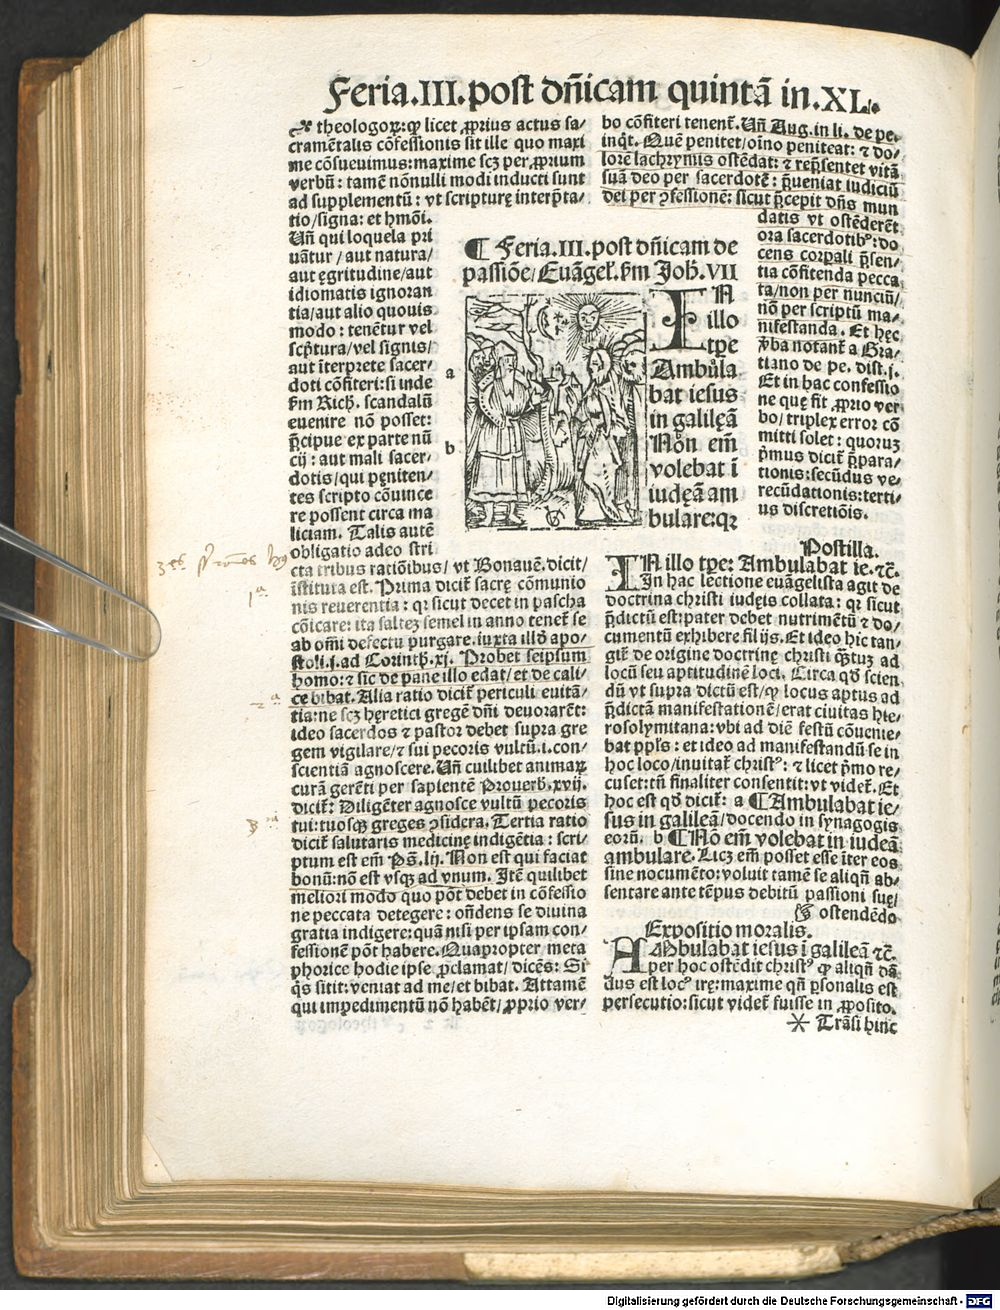 Feria.III.post dñicam quintã in.XL.
theologoꝝ: ꝙ licet ꝓprius actus sa⸗
cramẽtalis cõfessionis sit ille quo maxi
me cõsueuimus: maxime scꝫ per ꝓprium
verbũ: tamẽ nõnulli modi inducti sunt
ad supplementũ: vt scripturę interp̃ta⸗
tio/signa: et hmõi.
Uñ qui loquela pri
uãtur/aut natura/
aut ęgritudine/aut
idiomatis ignoran
tia/aut alio quouis
modo: tenẽtur vel
scp̃tura/vel signis/
aut ĩterprete sacer⸗
doti cõfiteri: si inde
ẜm Rich. scandalũ
euenire nõ posset:
p̃cipue ex parte nũ
cij: aut mali sacer⸗
dotis/qui pęniten⸗
tes scripto cõuince
re possent circa ma
liciam. Talis autẽ
obligatio adeo stri
cta tribus ratiõibus/vt Bonauẽ. dicit/
ĩstituta est. Prima dicit̃ sacrę cõmunio
nis reuerentia: qꝛ sicut decet in pascha
cõicare: ita saltẽ semel in anno tenet̃ se
ab om̃i defectu purgare. iuxta illđ apo⸗
stoli.j.ad Corinth.xj. Probet seipsum
homo: ⁊ sic de pane illo edat/et de cali⸗
ce bibat. Alia ratio dicit̃ periculi euitã⸗
tia: ne scꝫ hęretici gregẽ dñi deuorarẽt:
ideo sacerdos ⁊ pastor debet supra gre
gem vigilare/⁊ sui pecoris vultũ.i.con⸗
scientiã agnoscere. Uñ cuilibet animaꝝ
curã gerẽti per sapientẽ Prouerb.xvij.
dicit̃: Diligẽter agnosce vultũ pecoris
tui: tuosqꝫ greges ꝯsidera. Tertia ratio
dicit̃ salutaris medicinę indigẽtia: scri⸗
ptum est em̃ Pš.lij. Non est qui faciat
bonũ: nõ est vsqꝫ ad vnum. Itẽ quilibet
meliori modo quo põt debet in cõfessio
ne peccata detegere: oñdens se diuina
gratia indigere: quã nisi per ipsam con⸗
fessionẽ põt habere. Quapropter meta
phorice hodie ipse ꝓclamat/dicẽs: Si
q̃s sitit: veniat ad me/et bibat. Attamẽ
qui impedimentũ nõ habẽt/ꝓprio ver⸗
bo cõfiteri tenent̃. Uñ Aug. in li. de pe.
inq̃t. Quẽ penitet/oĩno peniteat: ⁊ do⸗
lorẽ lachrymis ostẽdat: ⁊ rep̃sentet vitã
suã deo per sacerdotẽ: p̃ueniat iudiciũ
dei per ꝯfessionẽ: sicut p̃cepit dñs mun
datis vt ostẽderẽt
ora sacerdotibꝰ: do
cens corp̃ali p̃sen⸗
tia cõfitenda pecca
ta/non per nunciũ/
nõ per scriptũ ma⸗
nifestanda. Et hęc
v̾ba notant̃ a Gra⸗
tiano de pe. dist.j.
Et in hac confessio
ne quę fit ꝓprio ver
bo/triplex error cõ
mitti solet: quoruꝫ
p̃mus dicit̃ p̃para⸗
tionis: secũdus ve⸗
recũdationis: terti⸗
us discretiõis.
¶ Feria.III.post dñicam de
passiõe/Euãgel̃.ẜm Joh̃.VII
a
b
IN
illo
tp̃e
Ambula
bat iesus
in galilęã
Nõn em̃
volebat ĩ
iudęã am
bulare: qꝛ
Postilla.
IN illo tp̃e: Ambulabat ie.⁊c̃.
In hac lectione euãgelista agit de
doctrina christi iudęis collata: qꝛ sicut
p̃dictũ est: pater debet nutrimẽtũ ⁊ do⸗
cumentũ exhibere filijs. Et ideo hic tan⸗
git̃ de origine doctrinę christi q̃ꝫtuꝫ ad
locũ seu aptitudinẽ loci. Circa qđ scien
dũ vt supra dictũ est/ꝙ locus aptus ad
p̃dictã manifestationẽ/erat ciuitas hie⸗
rosolymitana: vbi ad diẽ festũ cõuenie⸗
bat pp̃ls: et ideo ad manifestandũ se in
hoc loco/inuitat̃ christꝰ: ⁊ licet p̃mo re⸗
cuset: tñ finaliter consentit: vt videt̃. Et
hoc est qđ dicit̃: a ¶Ambulabat ie⸗
sus in galileã/docendo in synagogis
eorũ. b ¶Nõ em̃ volebat in iudeã
ambulare. Licꝫ em̃ posset esse ĩter eos
sine nocumẽto: voluit tamẽ se aliqñ ab⸗
sentare ante tẽpus debitũ passioni suę/
ostendẽdo
Expositio moralis.
AMbulabat iesus ĩ galileã ⁊c̃.
per hoc ostẽdit christꝰ ꝙ aliqñ dã
dus est locꝰ irę: maxime qñ p̃sonalis est
persecutio: sicut videt̃ fuisse in ꝓposito.
Trãsi hinc
1ᵃ
2ᵃ
3ᵃ
Digitalisierung gefördert durch die Deutsche Forschungsgemeinschaft - DFG